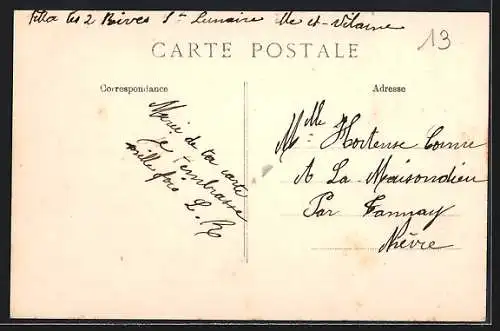 Villa les 2 Rives St Lunaire Ille et-Vilaine
13
CARTE POSTALE
Correspondance
Adresse
Merci de ta carte
je t'embrasse
mille fois L. R
Mlle Hortense
A La Maisondieu
Par Tannay
Nièvre